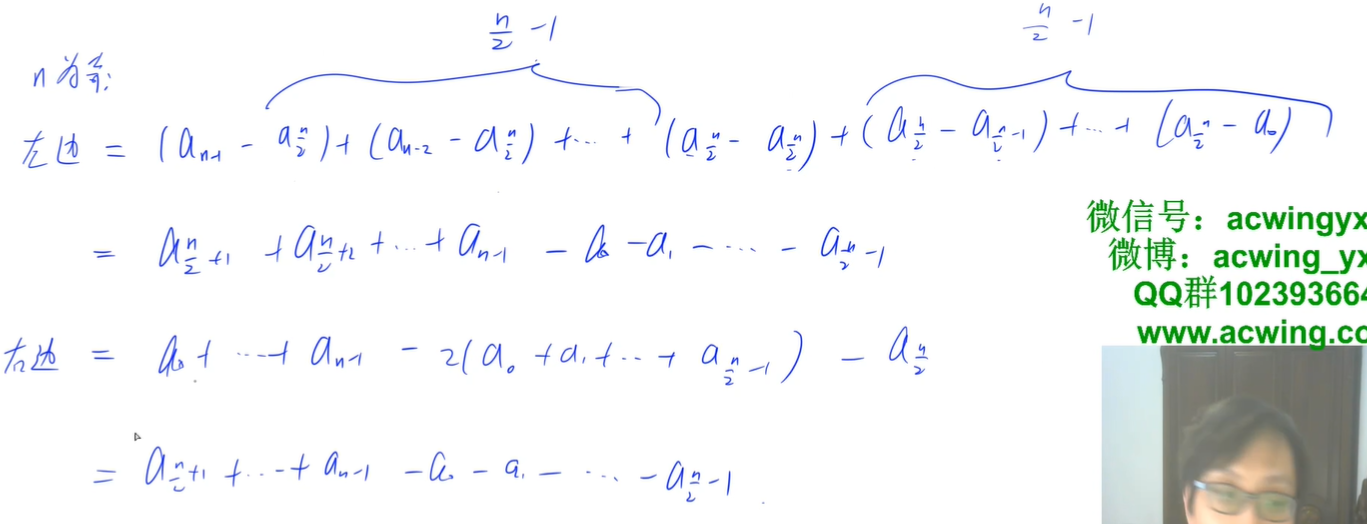 n/2 - 1    n/2 - 1
n为奇:
左边 = (a_{n-1} - a_{n/2}) + (a_{n-2} - a_{n/2}) + ... + (a_{n/2} - a_{n/2}) + (a_{n/2} - a_{n/2-1}) + ... + (a_{n/2} - a_0)
= a_{n/2+1} + a_{n/2+2} + ... + a_{n-1} - a_0 - a_1 - ... - a_{n/2-1}
右边 = a_0 + ... + a_{n-1} - 2(a_0 + a_1 + ... + a_{n/2-1}) - a_{n/2}
= a_{n/2+1} + ... + a_{n-1} - a_0 - a_1 - ... - a_{n/2-1}
微信号：acwingyx
微博：acwing_yx
QQ群102393664
www.acwing.co